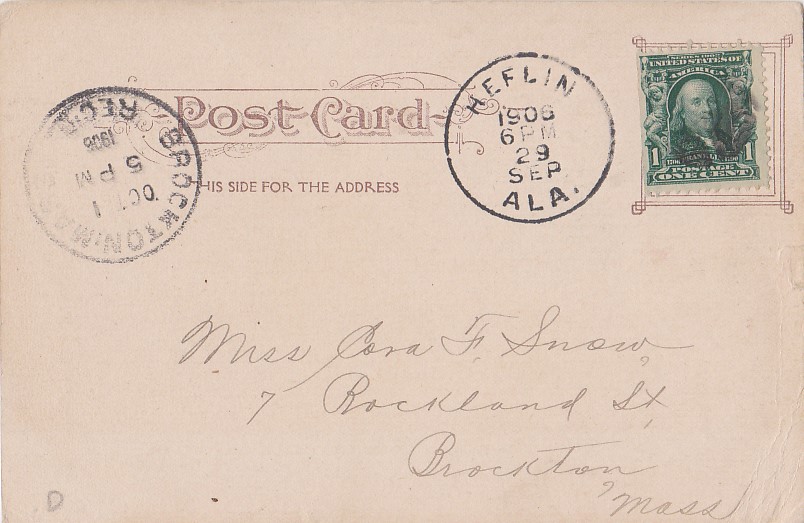 Post Card
HIS SIDE FOR THE ADDRESS
BROCKTON, MAS
OCT 1
5 PM
1906
REC'D
HEFLIN
1906
6 PM
29
SEP
ALA.
SERIES 1902
UNITED STATES OF
AMERICA
FRANKLIN
1 1
POSTAGE
ONE CENT
Miss Cora F. Snow,
7 Rockland St,
Brockton,
Mass
D